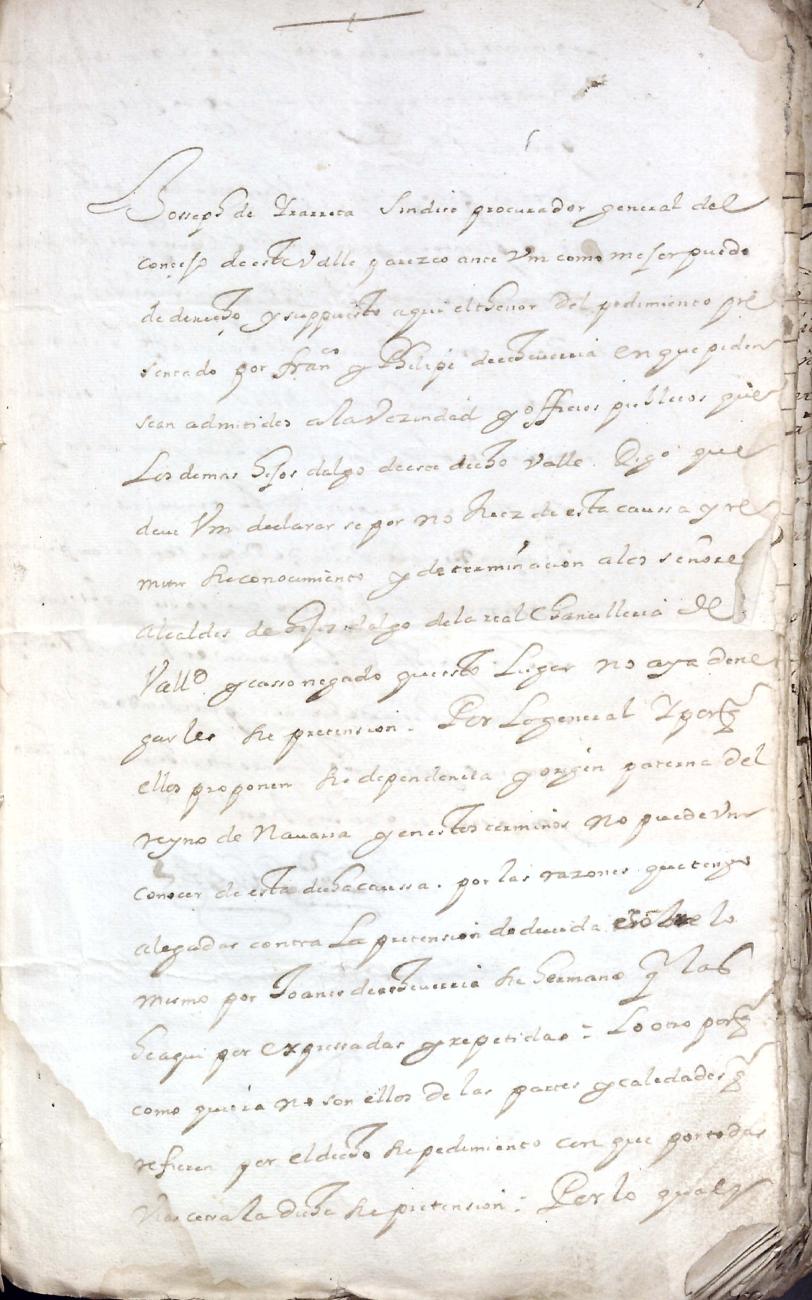 Josseph de Yrarreta Sindico procurador general del
conçejo de este Valle parezco ante Vm como mejor puedo
de derecho y suppuesto aqui el thenor del pedimiento pre
sentado por fran.co y Phelipe de echeverria en que piden
sean admitidos a la Vezindad y officios publicos que
Los demas hijos dalgo de este dicho Valle. Digo que
deve Vm declararse por no Juez de esta caussa y re
mitir su conocimiento y determinaçion a los señores
Alcaldes de hijos dalgo de la real Chancilleria de
Vall.d y casso negado que esto Lugar no aya dene
garles su pretension. Por Lo general Y porq
ellos proponen su dependencia y origen paterna del
reyno de Navarra y en estos terminos no puede Vm
conocer de esta dicha caussa. por las razones que tengo
alegadas contra La pretension deducida sobre lo
mismo por Joanes de echeverria su hermano q las
he aqui por expressadas y repetidas = Lo otro porq
como quiera no son ellos de las partes y calidades q
refieren por el dicho su pedimiento con que por todas
vias cessa la dicha su pretension = Por lo qual y